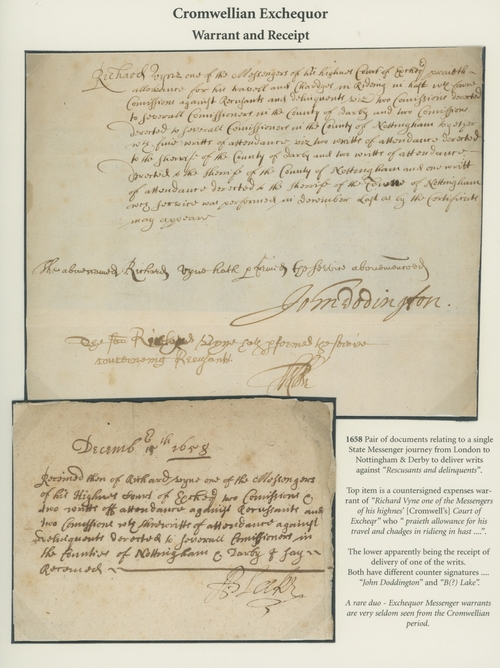 Cromwellian Exchequor
Warrant and Receipt
Richard Vyne one of the Messengers of his highnes Court of praieth
allowance for his travell and Chardges in Rideing in hast wth
Comissions against Recusants and delinquents vizt two Comissions derected
to severall Comissioners in the County of Darby and two Comissions
derected to severall Comissioners in the County of Nottingham togeather
wth five writts of attendance vizt two writts of attendance derected
to the Sherife of the County of Darby and two writts of attendance
derected to the Sherife of the County of Nottingham and one writt
of attendance derected to the Sherife of the of Nottingham
wch Service was performed in december Last as by the Certificate
may appeare
The abovenamed Richard Vyne hath pformed the Service abovemenconed
John Dodington.
The sd Richard Vyne hath pformed the service
concerning Recusants.
Decemb 1658
Received then of Richard Vyne one of the Messengers
of his Highnes Court of two Comissions &
two writts off attendance against Recusants and
two Comissions wth writts of attendance against
delinquents derected to severall Comissioners in
the Counties of Nottingham & Darby I say
Received
1658 Pair of documents relating to a single
State Messenger journey from London to
Nottingham & Derby to deliver writs
against "Rescusants and delinquents".
Top item is a countersigned expenses war-
rant of "Richard Vyne one of the Messengers
of his highnes' [Cromwell's] Court of
Excheqr" who " praieth allowance for his
travel and chadges in ridieng in hast ....".
The lower apparently being the receipt of
delivery of one of the writs.
Both have different counter signatures ....
"John Doddington" and "B(?) Lake".
A rare duo - Exchequor Messenger warrants
are very seldom seen from the Cromwellian
period.